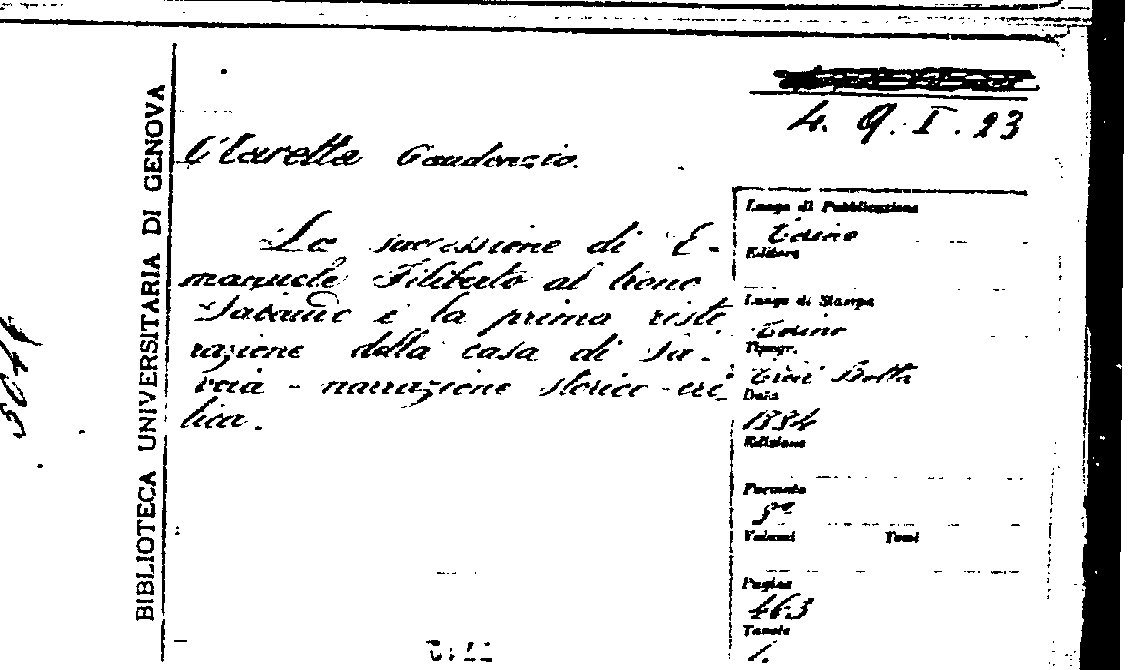 4. Q. I. 23
Claretta Gaudenzio.
La successione di E-
manuele Filiberto al trono
Sabaudo e la prima risto
razione della casa di Sa-
voia - narrazione storico-cri
tica.
BIBLIOTECA UNIVERSITARIA DI GENOVA
Luogo di Pubblicazione
Torino
Editore
Luogo di Stampa
Torino
Tipogr.
Eredi Botta
Data
1884
Edizione
Formato
8°
Volumi Tomi
Pagine
463
Tavole
1.